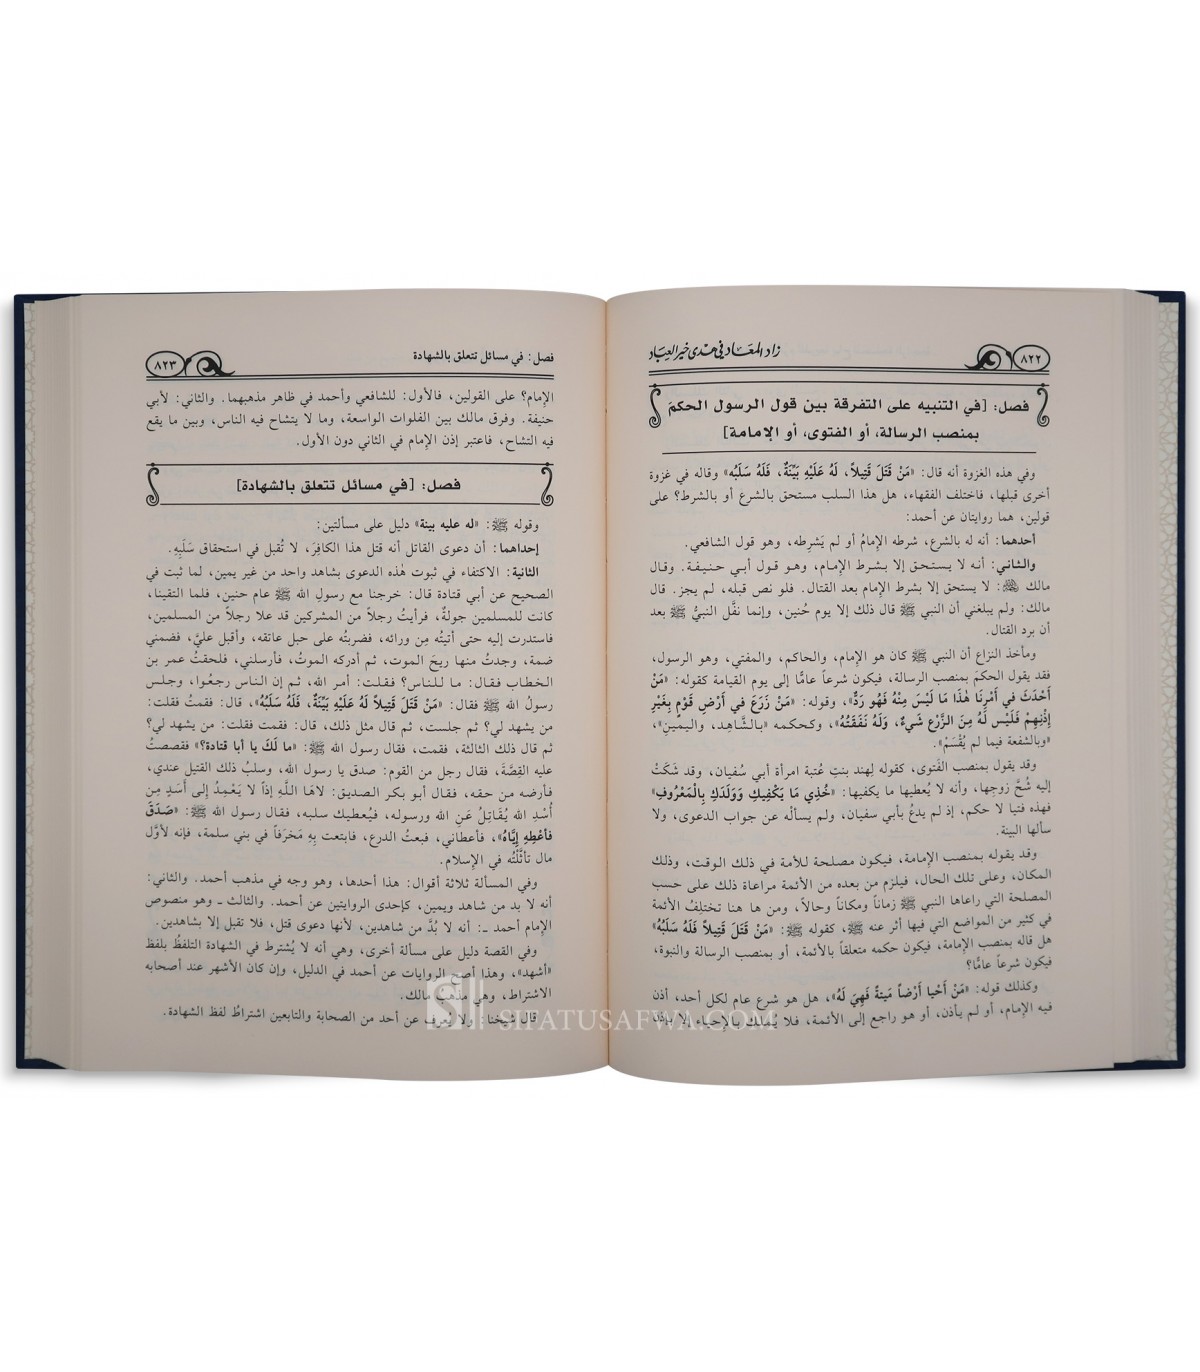 ٨٢٢
زاد المعاد في هدي خير العباد
فصل: [في التنبيه على التفرقة بين قول الرسول الحكمَ
بمنصب الرسالة، أو الفتوى، أو الإمامة]
وفي هذه الغزوة أنه قال: «مَنْ قَتَلَ قَتِيلاً، لَهُ عَلَيْهِ بَيِّنَةٌ، فَلَهُ سَلَبُه» وقاله في غزوة
أخرى قبلها، فاختلف الفقهاء، هل هذا السلب مستحق بالشرع أو بالشرط؟ على
قولين، هما روايتان عن أحمد:
أحدهما: أنه له بالشرع، شرطه الإمامُ أو لم يَشرِطه، وهو قول الشافعي.
والثاني: أنه لا يستحق إلا بشرط الإمام، وهو قول أبي حنيفة. وقال
مالك ﵀: لا يستحق إلا بشرط الإمام بعد القتال. فلو نص قبله، لم يجز. قال
مالك: ولم يبلغني أن النبي ﷺ قال ذلك إلا يوم حُنين، وإنما نفَّل النبيُّ ﷺ بعد
أن برد القتال.
ومأخذ النزاع أن النبي ﷺ كان هو الإمام، والحاكم، والمفتي، وهو الرسول،
فقد يقول الحكمَ بمنصب الرسالة، فيكون شرعاً عامًّا إلى يوم القيامة كقوله: «مَنْ
أَحْدَثَ في أَمْرِنَا هٰذَا مَا لَيْسَ مِنْهُ فَهُو رَدٌّ»، وقوله: «مَنْ زَرَعَ في أَرْضِ قَوْمٍ بِغَيْرِ
إِذْنِهِمْ فَلَيْسَ لَهُ مِنَ الزَّرْعِ شَيءٌ، وَلَهُ نَفَقَتُهُ»، وكحكمه «بالشَّاهِد، واليمينِ»،
«وبالشفعة فيما لم يُقْسَمْ».
وقد يقول بمنصب الفَتوى، كقوله لِهند بنتِ عُتبة امرأة أبي سُفيان، وقد شَكَتْ
إليه شُحَّ زوجِها، وأنه لا يُعطيها ما يكفيها: «خُذِي مَا يَكْفِيكِ وَوَلَدَكِ بِالْمَعْرُوفِ»
فهذه فتيا لا حكم، إذ لم يدعُ بأبي سفيان، ولم يسأله عن جواب الدعوى، ولا
سألها البينة.
وقد يقوله بمنصب الإمامة، فيكون مصلحة للأمة في ذلك الوقت، وذلك
المكان، وعلى تلك الحال، فيلزم من بعده من الأئمة مراعاة ذلك على حسب
المصلحة التي راعاها النبي ﷺ زماناً ومكاناً وحالاً، ومن ها هنا تختلِفُ الأئمة
في كثير من المواضع التي فيها أثر عنه ﷺ، كقوله ﷺ: «مَنْ قَتَلَ قَتِيلاً فَلَهُ سَلَبُهُ»
هل قاله بمنصب الإمامة، فيكون حكمه متعلقاً بالأئمة، أو بمنصب الرسالة والنبوة،
فيكون شرعاً عامًّا؟
وكذلك قوله: «مَنْ أَحْيا أَرْضاً مَيتةً فَهِيَ لَهُ»، هل هو شرع عام لكل أحد، أذن
فيه الإمام، أو لم يأذن، أو هو راجع إلى الأئمة، فلا يملك بالإحياء إلا بإذن
٨٢٣
فصل: في مسائل تتعلق بالشهادة
الإمام؟ على القولين، فالأول: للشافعي وأحمد في ظاهر مذهبهما. والثاني: لأبي
حنيفة. وفرق مالك بين الفلوات الواسعة، وما لا يتشاح فيه الناس، وبين ما يقع
فيه التشاح، فاعتبر إذن الإمام في الثاني دون الأول.
فصل: [في مسائل تتعلق بالشهادة]
وقوله ﷺ: «له عليه بينة» دليل على مسألتين:
إحداهما: أن دعوى القاتل أنه قتل هذا الكافِرَ، لا تُقبل في استحقاق سَلَبِهِ.
الثانية: الاكتفاء في ثبوت هٰذه الدعوى بشاهد واحد من غير يمين، لما ثبت في
الصحيح عن أبي قتادة قال: خرجنا مع رسولِ الله ﷺ عام حنين، فلما التقينا،
كانت للمسلمين جولةٌ، فرأيتُ رجلاً من المشركين قد علا رجلاً من المسلمين،
فاستدرت إليه حتى أتيتُه مِن ورائه، فضربتُه على حبل عاتقه، وأقبل عليَّ، فضمني
ضمة، وجدتُ منها ريحَ الموت، ثم أدركه الموتُ، فأرسلني، فلحقتُ عمر بن
الخطاب فقال: ما للناس؟ فقلت: أمر الله، ثم إن الناس رجعُوا، وجلس
رسولُ الله ﷺ فقال: «مَنْ قَتَلَ قَتِيلاً لَهُ عَلَيْهِ بَيِّنَةٌ، فَلَهُ سَلَبُهُ»، قال: فقمتُ فقلت:
من يشهد لي؟ ثم جلست، ثم قال مثل ذلك، قال: فقمت فقلت: من يشهد لي؟
ثم قال ذلك الثالثة، فقمت، فقال رسول الله ﷺ: «ما لَكَ يا أبا قتادة؟» فقصصتُ
عليه القِصَّةَ، فقال رجل من القوم: صدق يا رسول الله، وسلبُ ذلك القتيل عندي،
فأرضه من حقه، فقال أبو بكر الصديق: لاهَا اللَّهِ إِذاً لاَ يَعْمِدُ إلى أَسَدٍ مِن
أُسْدِ الله يُقَاتِلُ عَنِ الله ورسوله، فيُعطيك سلبه، فقال رسول الله ﷺ: «صَدَقَ
فأعْطِهِ إِيَّاهُ»، فأعطاني، فبعتُ الدرع، فابتعت بِهِ مَخرَفاً في بني سلمة، فإنه لأوَّل
مال تأثَّلتُه في الإسلام.
وفي المسألة ثلاثة أقوال: هذا أحدها، وهو وجه في مذهب أحمد. والثاني:
أنه لا بد من شاهد ويمين، كإحدى الروايتين عن أحمد. والثالث ـ وهو منصوص
الإمام أحمد ـ: أنه لا بُدَّ من شاهدين، لأنها دعوى قتل، فلا تقبل إلا بشاهدين.
وفي القصة دليل على مسألة أخرى، وهي أنه لا يُشترط في الشهادة التلفظُ بلفظ
«أشهد»، وهذا أصح الروايات عن أحمد في الدليل، وإن كان الأشهر عند أصحابه
الاشتراط، وهي مذهب مالك.
قال شيخنا: ولا يُعرف عن أحد من الصحابة والتابعين اشتراطُ لفظ الشهادة.
SIFATUSAFWA.COM